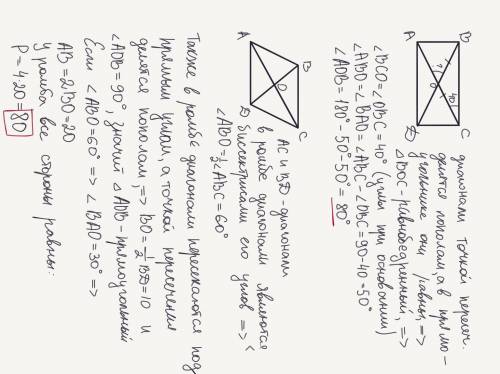 B C
A D
O
40
?
диагонали точкой пересеч.
делятся пополам, а в прямо-
угольнике они равны, =>
△BOC-равнобедренный, =>
∠BCO=∠OBC=40° (углы при основании)
∠ABO=∠BAO=∠ABC-∠OBC=90-40=50°
∠AOB=180°-50°-50°=80°
A B C D
O
AC и BD-диагонали
в ромбе диагонали являются
биссектрисами его углов =>
∠ABO=½∠ABC=60°
Также в ромбе диагонали пересекаются под
прямым углом, а точкой пересечения
делятся пополам, => BO=½BD=10 и
∠AOB=90°, значит △AOB-прямоугольный
Если ∠ABO=60° => ∠BAO=30° =>
AB=2BO=20
У ромба все стороны равны:
P=4·20=80